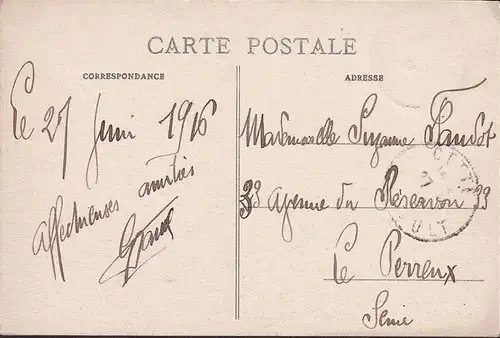 CARTE POSTALE
CORRESPONDANCE
Le 27 Juin 1916
Affectueuses amitiés
ADRESSE
Mademoiselle Suzanne
33 Avenue du Réservoir 33
Le Perreux
Seine
CETTE